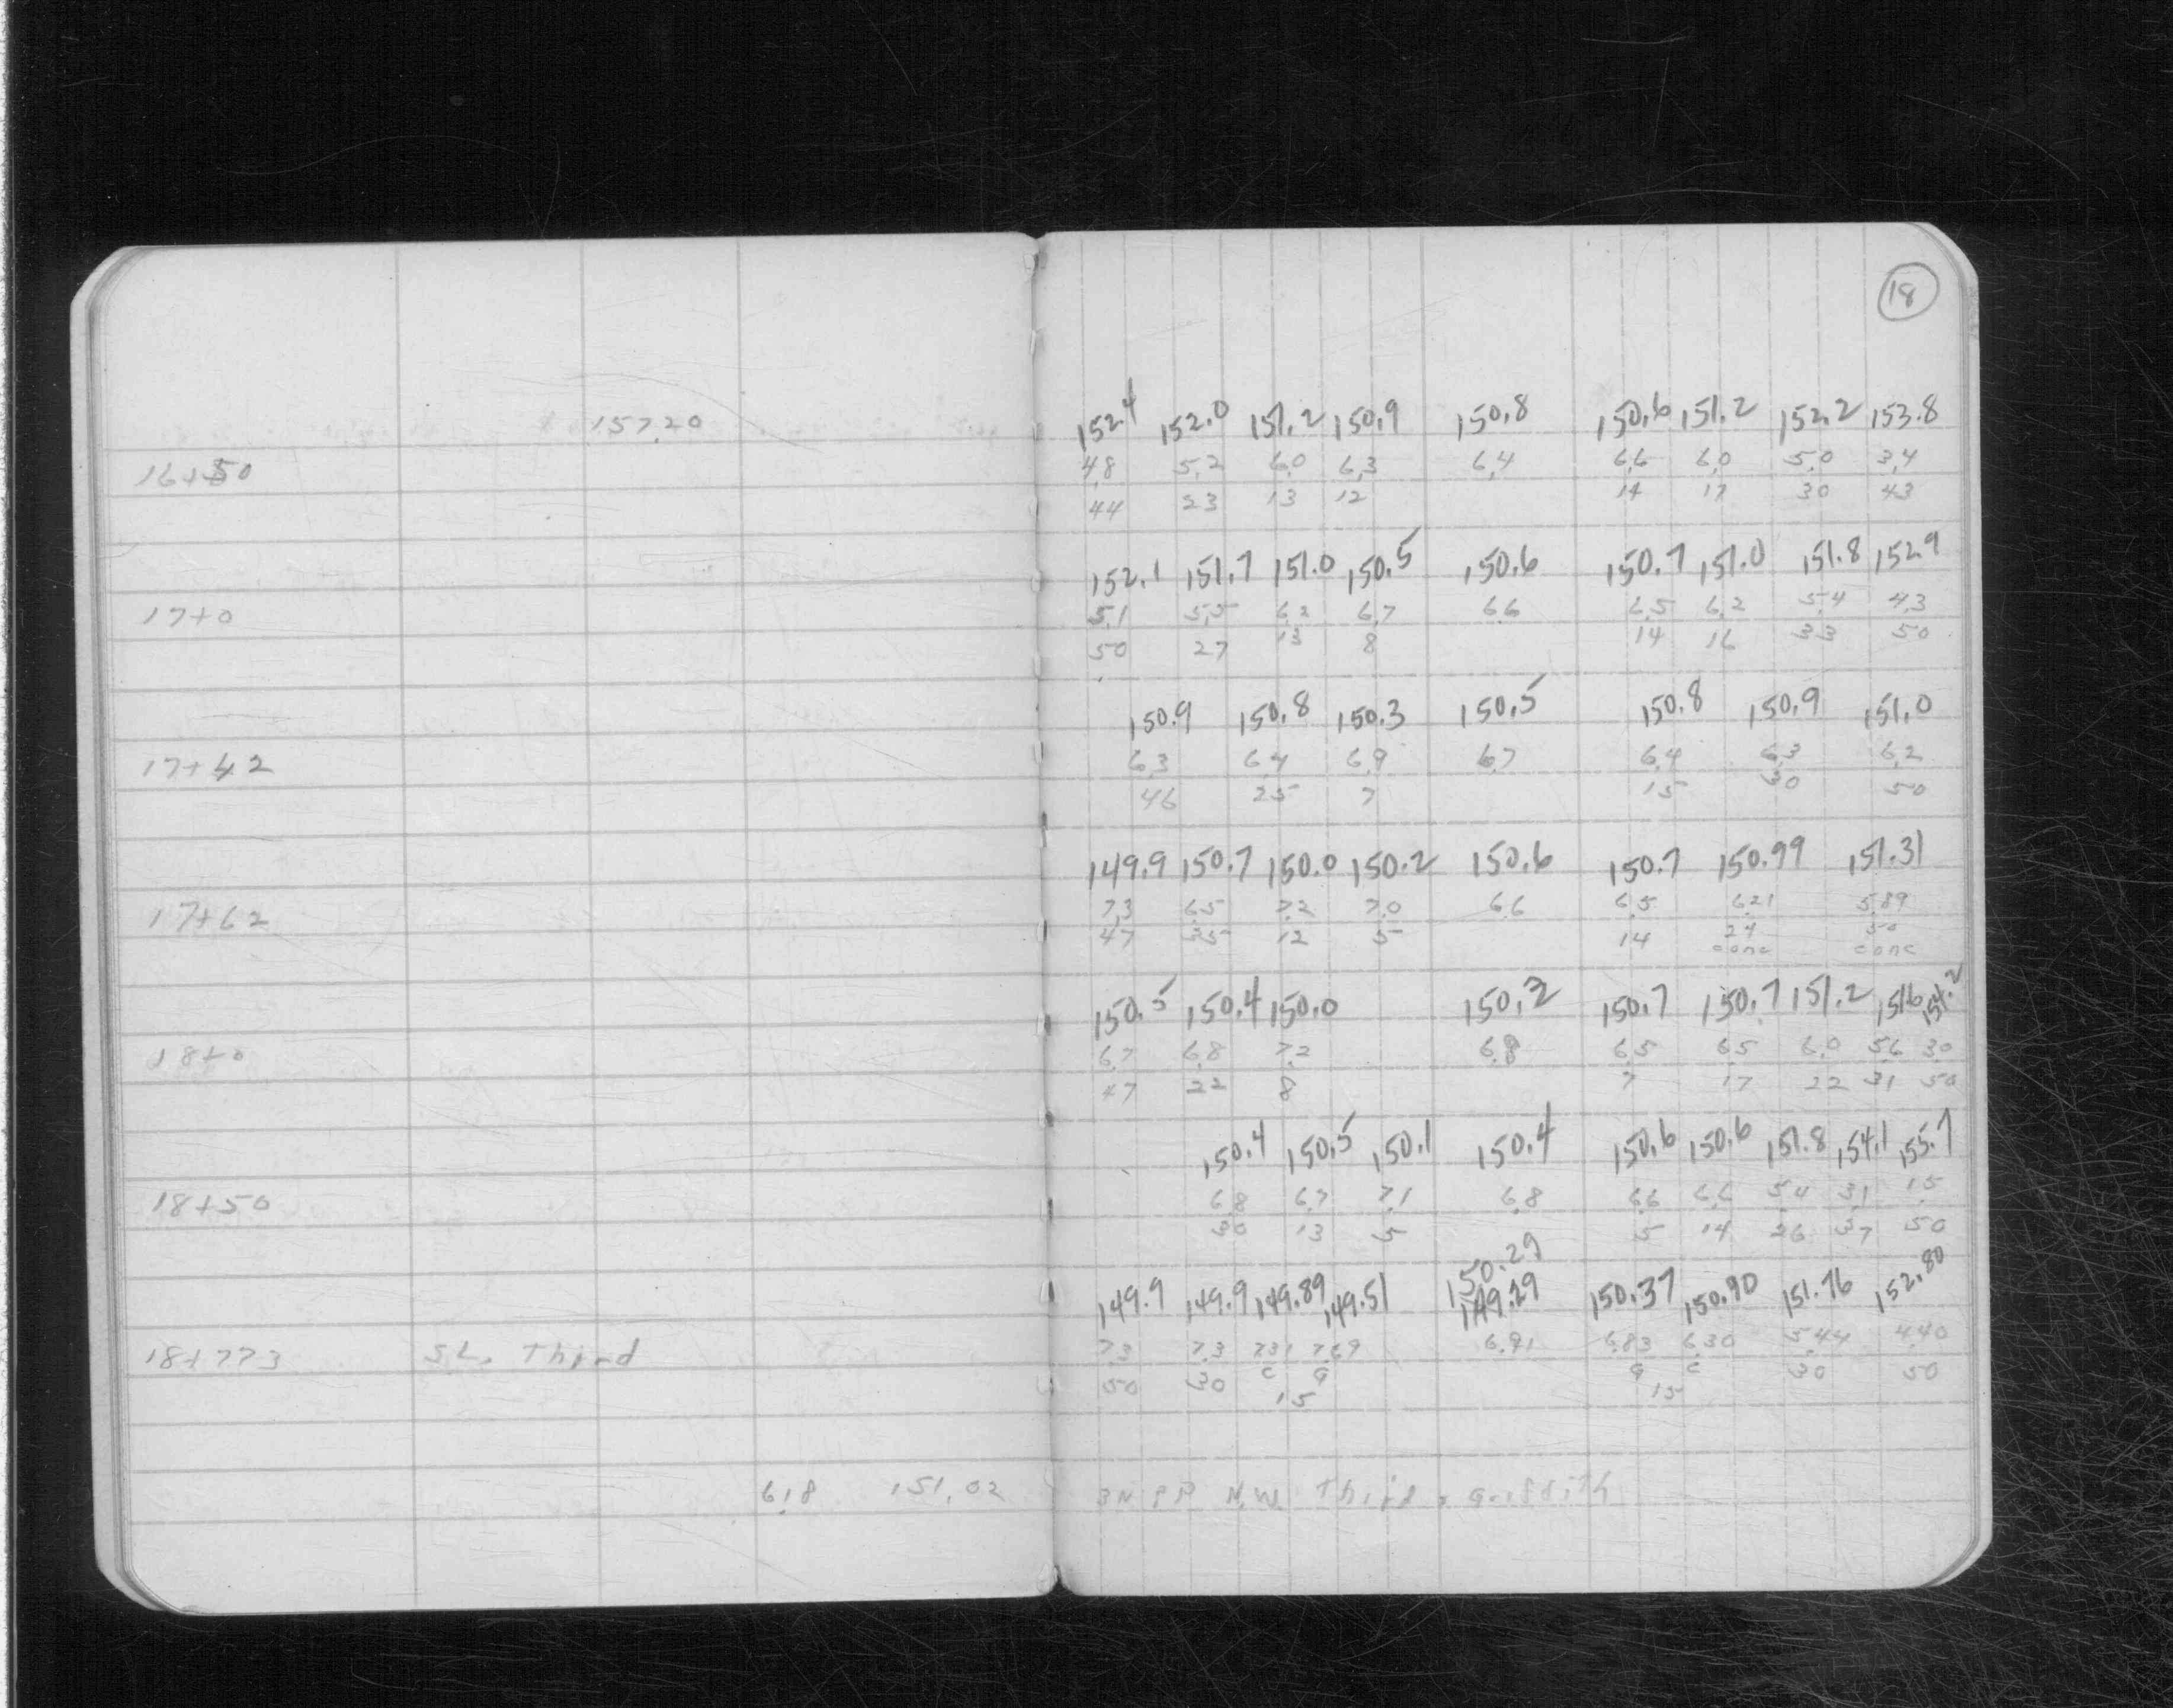 18
157.20 152.4 152.0 151.2 150.9 150.8 150.6 151.2 152.2 153.8
16+50 4.8 5.2 6.0 6.3 6.4 6.6 6.0 5.0 3.4
44 23 13 12 14 17 30 43
152.1 151.7 151.0 150.5 150.6 150.7 151.0 151.8 152.9
17+0 5.1 5.5 6.2 6.7 6.6 6.5 6.2 5.4 4.3
50 27 13 8 14 16 33 50
150.9 150.8 150.3 150.5 150.8 150.9 151.0
17+42 6.3 6.4 6.9 6.7 6.4 6.3 6.2
46 25 7 15 30 50
149.9 150.7 150.0 150.2 150.6 150.7 150.99 151.31
17+62 7.3 6.5 7.2 7.0 6.6 6.5 6.21 5.89
47 35 12 5 14 24 50
conc conc
150.5 150.4 150.0 150.2 150.7 150.7 151.2 151.6 154.2
18+0 6.7 6.8 7.2 6.8 6.5 6.5 6.0 5.6 3.0
47 22 8 7 17 22 31 50
150.4 150.5 150.1 150.4 150.6 150.6 151.8 154.1 155.7
18+50 6.8 6.7 7.1 6.8 6.6 6.6 5.4 3.1 1.5
30 13 5 5 14 26 37 50
150.29
149.9 149.9 149.89 149.51 149.29 150.37 150.90 151.76 152.80
18+77.3 SL. Third 7.3 7.3 7.31 7.69 6.91 6.83 6.30 5.44 4.40
50 30 C G G C 30 50
15 15
6.18 151.02 3N PP N.W. Third & Griffith